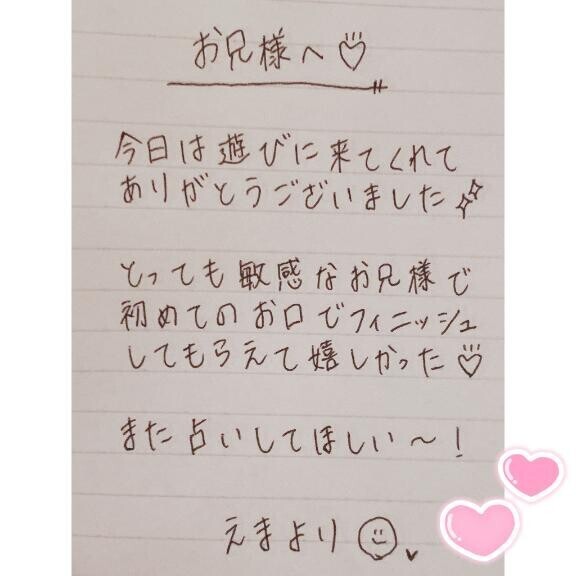 お兄様へ♡
今日は遊びに来てくれて
ありがとうございました
とっても敏感なお兄様で
初めてのお口でフィニッシュ
してもらえて嬉しかった♡
また占いしてほしい〜!
えまより